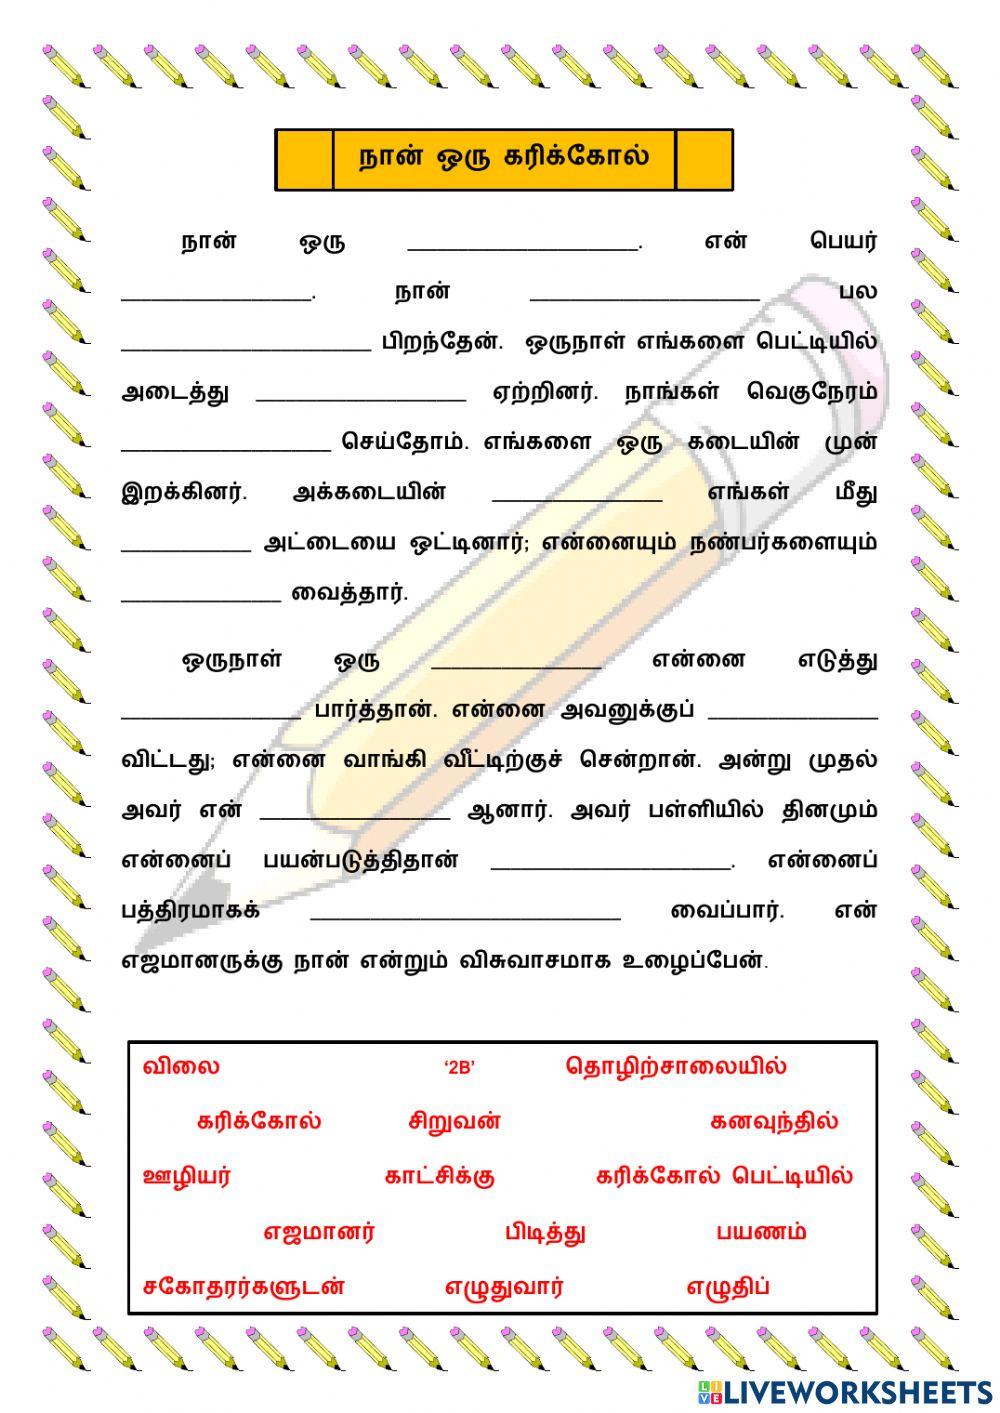 நான் ஒரு கரிக்கோல்
நான் ஒரு ____________________. என் பெயர்
________________. நான் ____________________ பல
______________________ பிறந்தேன். ஒருநாள் எங்களை பெட்டியில்
அடைத்து __________________ ஏற்றினர். நாங்கள் வெகுநேரம்
__________________ செய்தோம். எங்களை ஒரு கடையின் முன்
இறக்கினர். அக்கடையின் ______________ எங்கள் மீது
___________ அட்டையை ஒட்டினார்; என்னையும் நண்பர்களையும்
______________ வைத்தார்.
ஒருநாள் ஒரு ______________ என்னை எடுத்து
_______________ பார்த்தான். என்னை அவனுக்குப் ______________
விட்டது; என்னை வாங்கி வீட்டிற்குச் சென்றான். அன்று முதல்
அவர் என் ________________ ஆனார். அவர் பள்ளியில் தினமும்
என்னைப் பயன்படுத்திதான் ____________________. என்னைப்
பத்திரமாகக் __________________________ வைப்பார். என்
எஜமானருக்கு நான் என்றும் விசுவாசமாக உழைப்பேன்.
விலை ‘2B’ தொழிற்சாலையில்
கரிக்கோல் சிறுவன் கனவுந்தில்
ஊழியர் காட்சிக்கு கரிக்கோல் பெட்டியில்
எஜமானர் பிடித்து பயணம்
சகோதரர்களுடன் எழுதுவார் எழுதிப்
LIVEWORKSHEETS